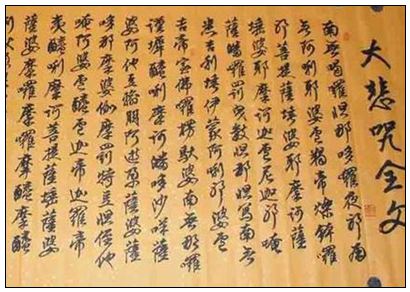 大悲咒全文
南無喝囉怛那哆囉夜耶南
無阿唎耶婆盧羯帝爍缽囉
耶菩提薩埵婆耶摩訶薩
埵婆耶摩訶迦盧尼迦耶唵
薩皤囉罰曳數怛那寫南無
悉吉利埵伊蒙阿唎耶婆盧
吉帝室佛囉楞馱婆南無那囉
謹墀醯唎摩訶皤哆沙咩薩
婆阿他豆輸朋阿逝孕薩婆
哆那摩婆伽摩罰特豆怛侄他
唵阿婆盧醯盧迦帝迦羅帝
夷醯唎摩訶菩提薩埵薩婆
薩婆摩囉摩囉摩醯摩醯